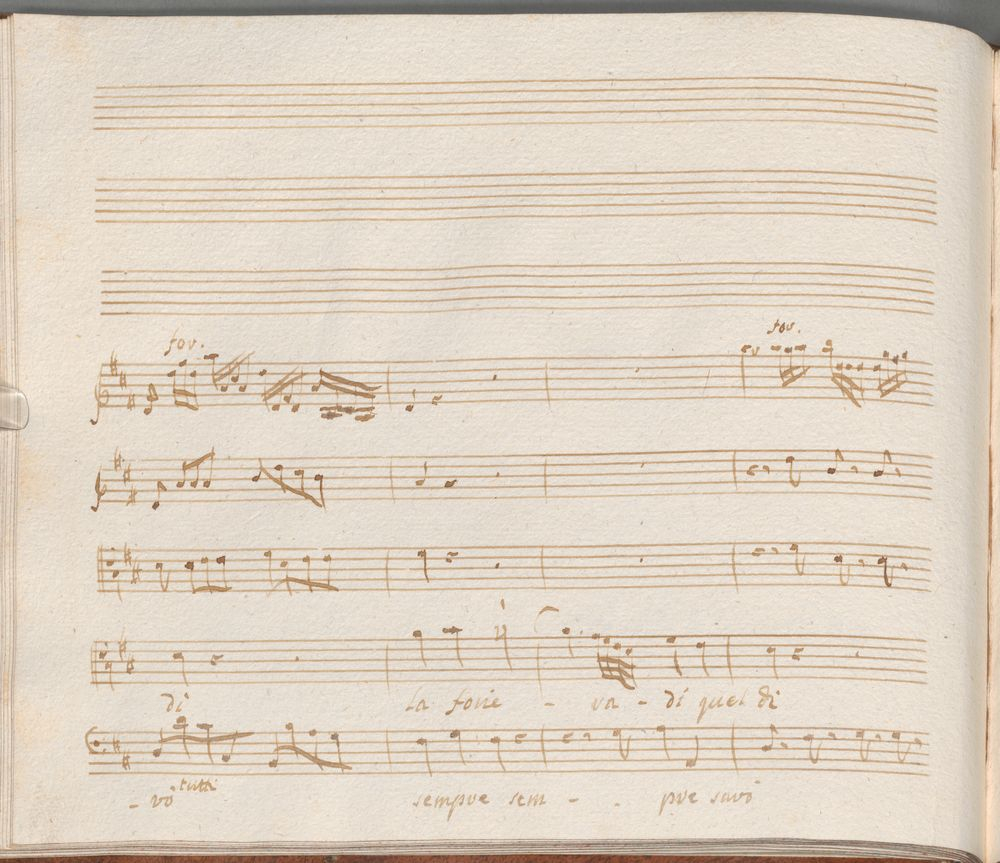 for.
for.
di la forie - va - di quel di
- vò tutti sempre sem - - pre sarò